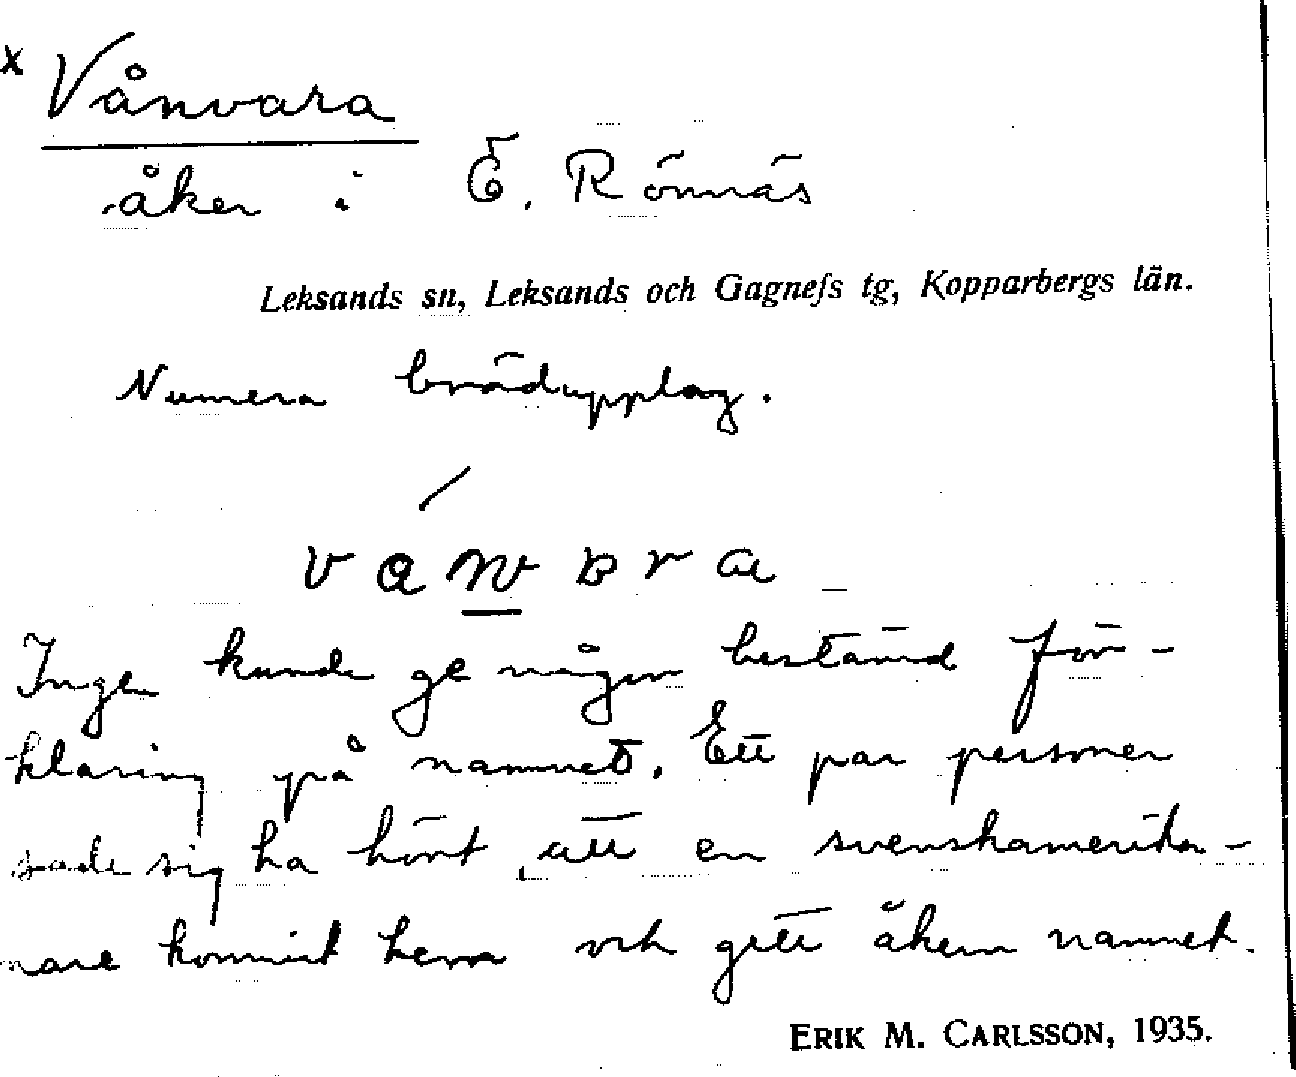 x Vånvara
åker i Ö. Rönnäs
Leksands sn, Leksands och Gagnefs tg, Kopparbergs län.
Numera brädupplag.
Ingen kunde ge någon bestämd för-
klaring på namnet. Ett par personer
sade sig ha hört att en svenskamerika-
nare kommit hem och gett åkern namnet.
ERIK M. CARLSSON, 1935.